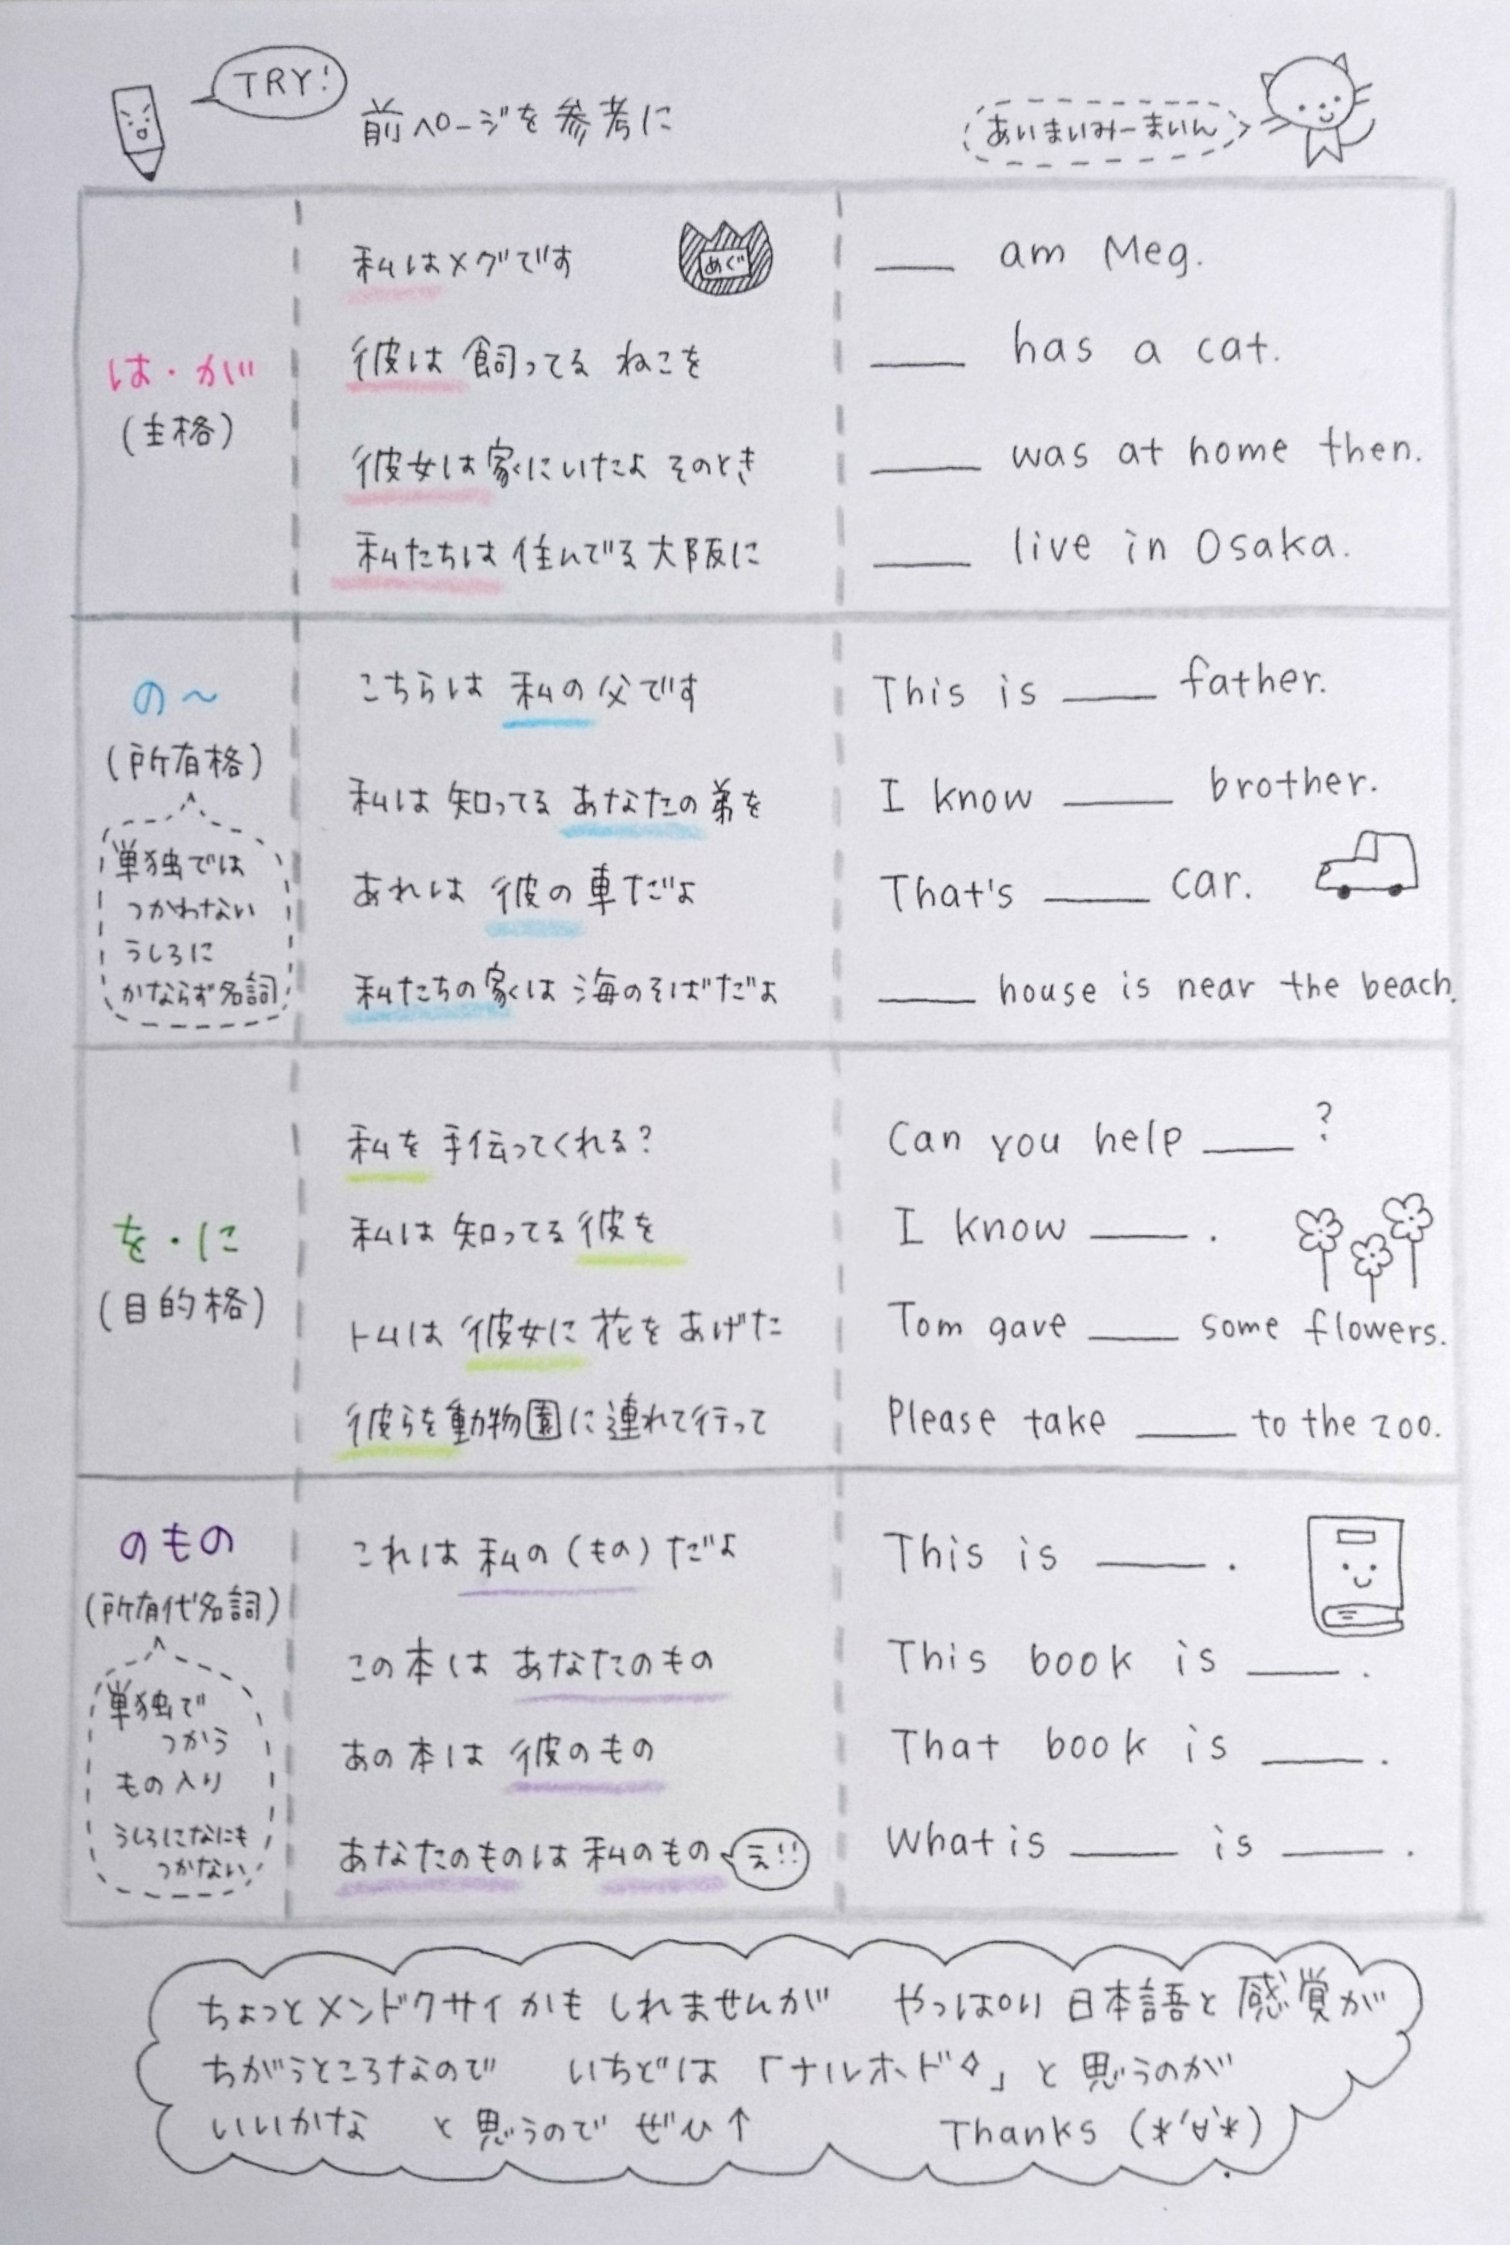 TRY!
前ページを参考に
あいまいみーまいん
は・が
(主格)
私はメグです
めぐ
___ am Meg.
彼は 飼ってる ねこを
___ has a cat.
彼女は家にいたよ そのとき
___ was at home then.
私たちは 住んでる大阪に
___ live in Osaka.
の〜
(所有格)
単独では
つかわない
うしろに
かならず名詞
こちらは 私の父です
This is ___ father.
私は 知ってる あなたの弟を
I know ___ brother.
あれは 彼の車だよ
That's ___ car.
私たちの家は 海のそばだよ
___ house is near the beach.
を・に
(目的格)
私を 手伝ってくれる?
Can you help ___ ?
私は 知ってる 彼を
I know ___ .
トムは 彼女に 花を あげた
Tom gave ___ some flowers.
彼らを動物園に連れて行って
Please take ___ to the zoo.
のもの
(所有代名詞)
単独で
つかう
もの入り
うしろになにも
つかない
これは 私の(もの)だよ
This is ___ .
この本は あなたのもの
This book is ___ .
あの本は 彼のもの
That book is ___ .
あなたのものは 私のもの
え!!
What is ___ is ___ .
ちょっとメンドクサイかもしれませんが やっぱり 日本語と感覚が
ちがうところなので いちどは「ナルホド✧」と思うのが
いいかな と思うので ぜひ↑ Thanks (*'∀'*)